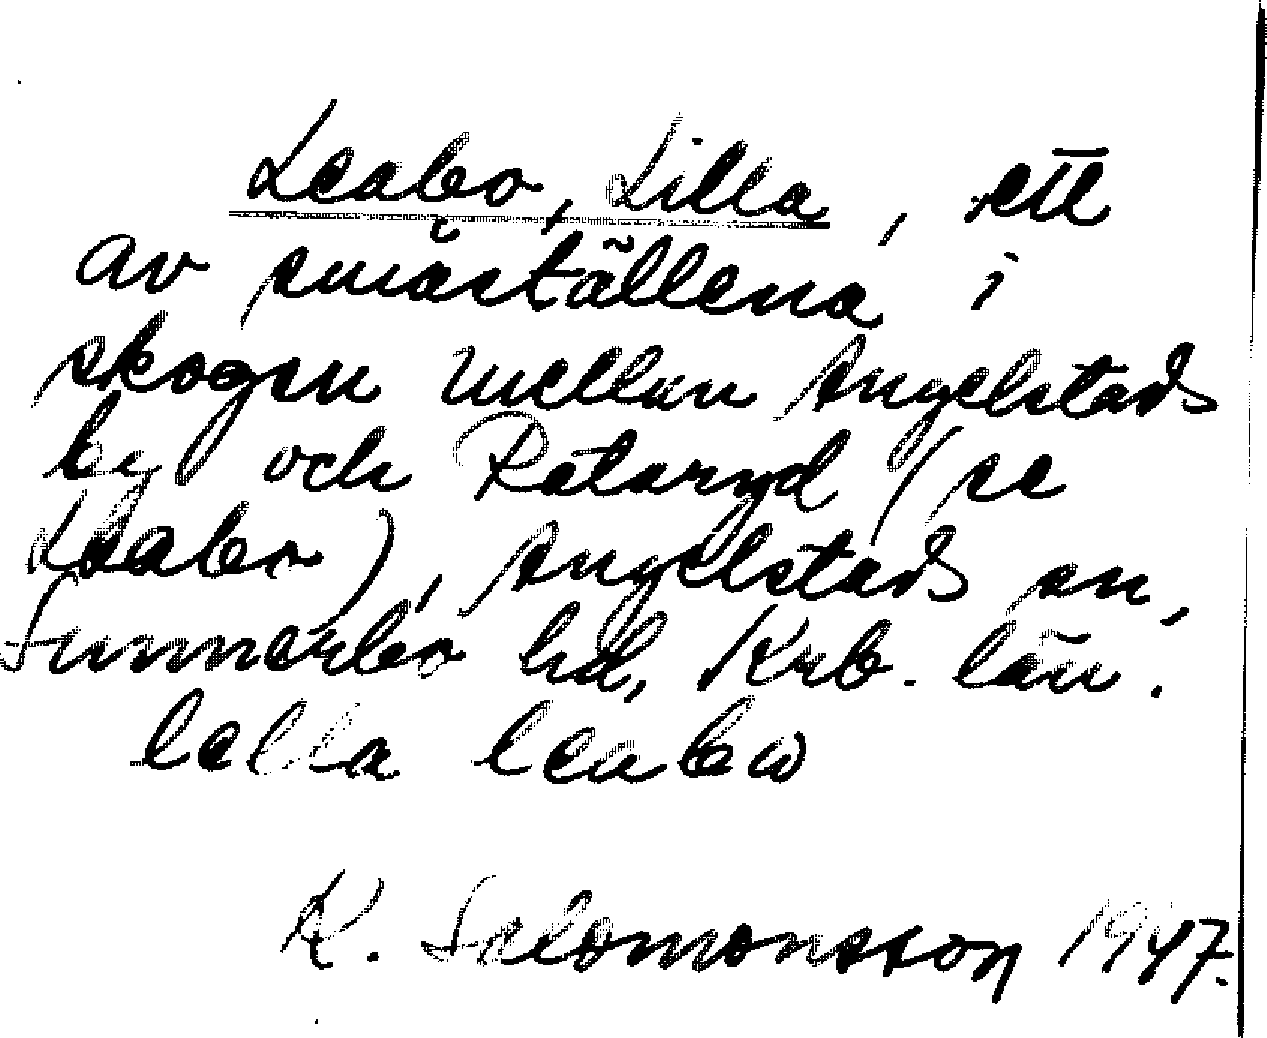 Leabo, Lilla, ett
av småställena i
skogen mellan Angelstads
by och Rataryd (se
Leabo), Angelstads sn,
Sunnerbo hd, Krb. län.
lella leabo
K. Salomonsson 1947.